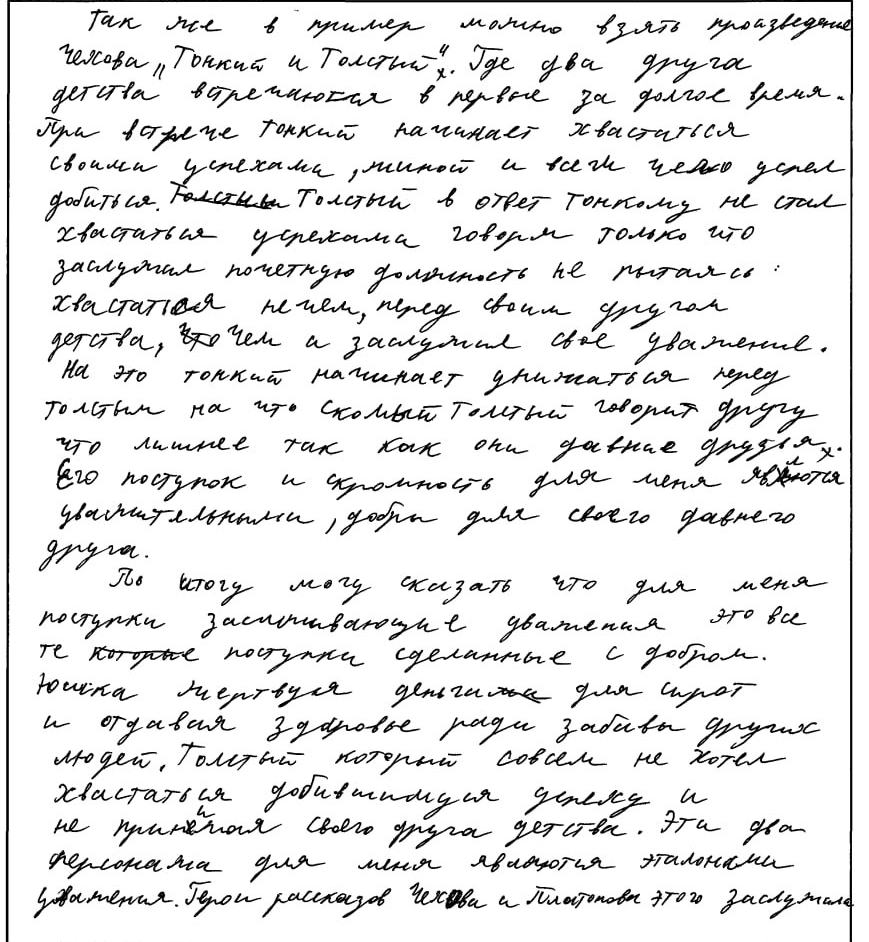 Так же в пример можно взять произведение
Чехова „Тонкий и Толстый". Где два друга
детства встречаются в первые за долгое время.
При встрече тонкий начинает хвастаться
своими успехами, женой и всем чего успел
добиться. Толстый в ответ тонкому не стал
хвастаться успехами говоря только что
заслужил почетную должность не пытаясь
хвастаться нечем, перед своим другом
детства, чем и заслужил свое уважение.
На это тонкий начинает унижаться перед
толстым на что Толстый говорит другу
что лишнее так как они давние друзья.
Его поступок и скромность для меня являются
уважительными, добры для своего давнего
друга.
По итогу могу сказать что для меня
поступки заслуживающие уважения это все
те поступки сделанные с добром.
Юшка жертвуя деньги для сирот
и отдавая здоровье ради забавы других
людей. Толстый который совсем не хотел
хвастаться добившимуся успеху и
не принижая своего друга детства. Эти два
персонажа для меня являются эталонами
уважения. Герои рассказов Чехова и Платонова этого заслужили